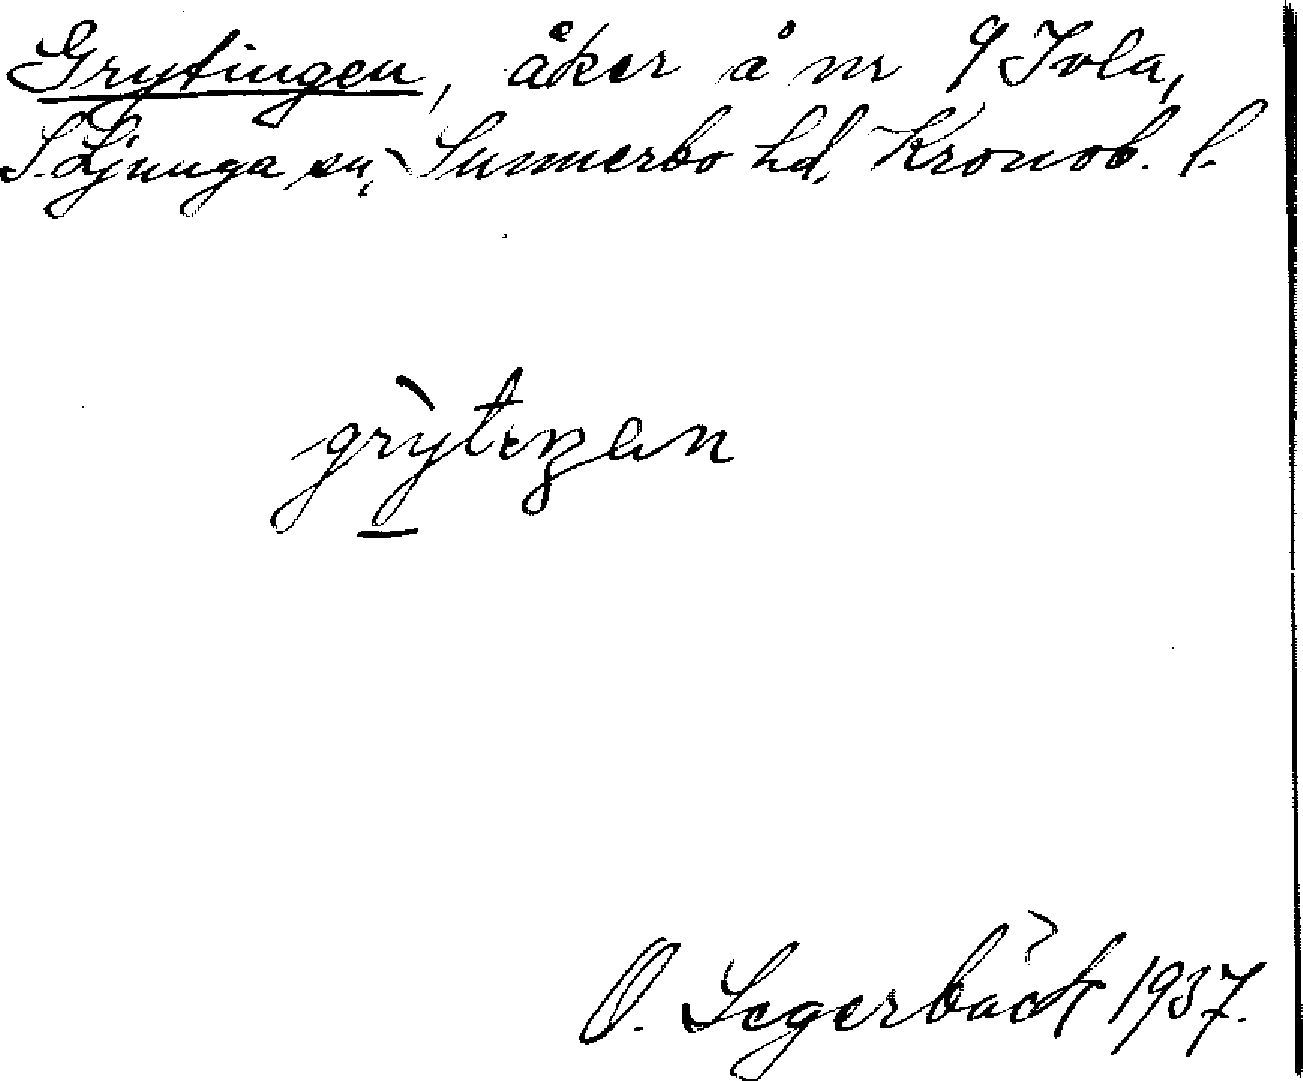 Grytingen, åker å nr 9 Tvla,
S. Ljunga sn, Sunnerbo hd, Kronob. l.
grỳteŋen
O. Segerbäck 1937.